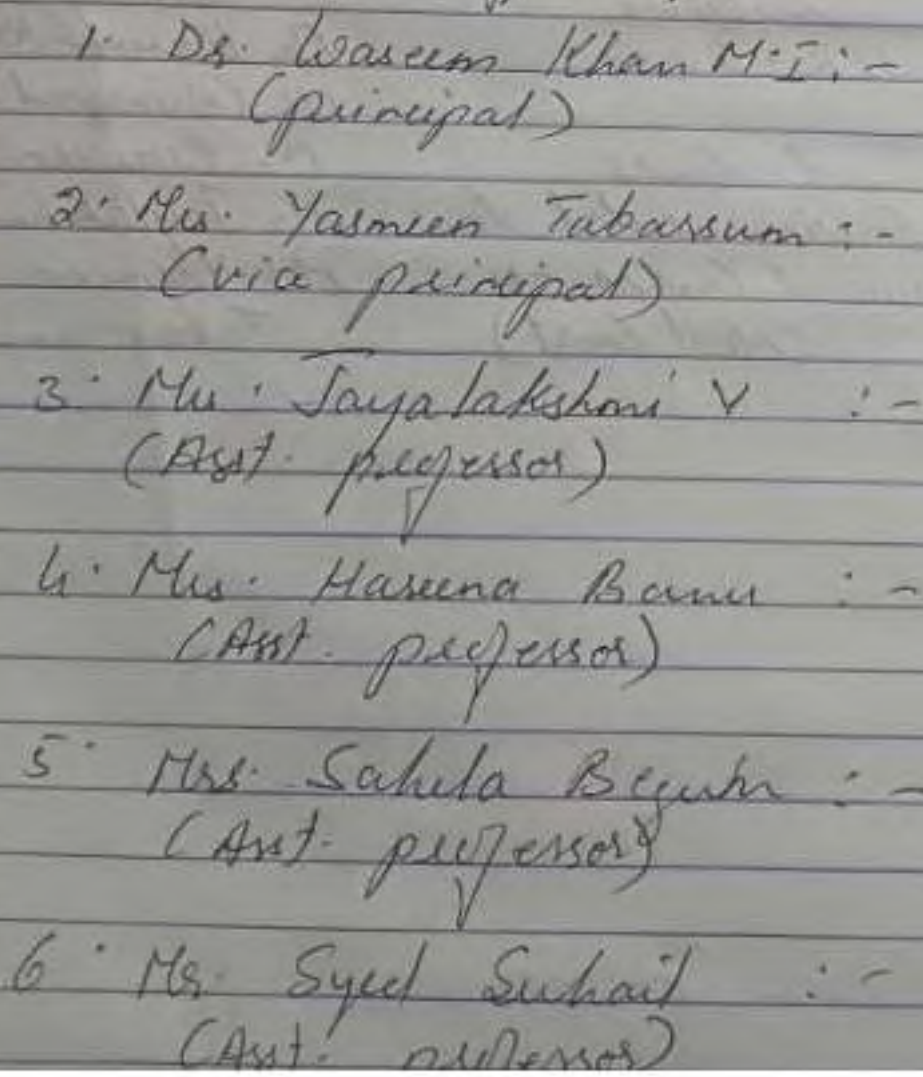 1. Dr. Waseem Khan M.I :-
(principal)
2. Mrs. Yasmeen Tabassum :-
(vice principal)
3. Mrs. Jayalakshmi V :-
(Asst. professor)
4. Mrs. Haseena Banu :-
(Asst. professor)
5. Mrs. Sahela Begum :-
(Asst. professor)
6. Mr. Syed Suhail :-
(Asst. professor)